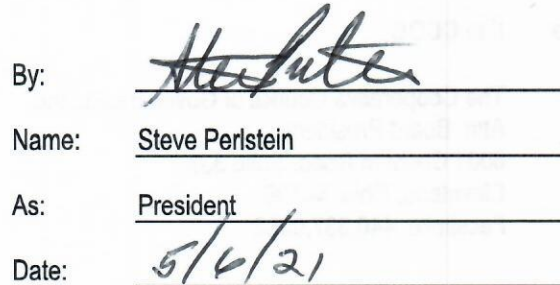 By:
Name: Steve Perlstein
As: President
Date: 5/6/21